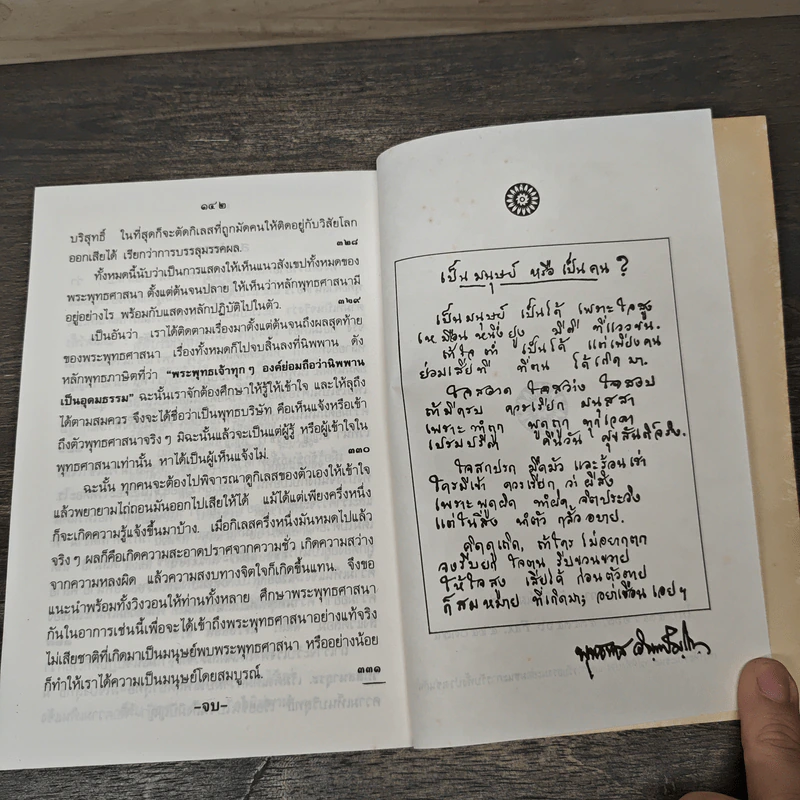 ๑๔๒
บริสุทธิ์ ในที่สุดก็จะตัดกิเลสที่ถูกมัดคนให้ติดอยู่กับวิสัยโลก
ออกเสียได้ เรียกว่าการบรรลุมรรคผล. ๓๒๘
ทั้งหมดนี้นับว่าเป็นการแสดงให้เห็นแนวสังเขปทั้งหมดของ
พระพุทธศาสนา ตั้งแต่ต้นจนปลาย ให้เห็นว่าหลักพุทธศาสนามี
อยู่อย่างไร พร้อมกับแสดงหลักปฏิบัติไปในตัว. ๓๒๙
เป็นอันว่า เราได้ติดตามเรื่องมาตั้งแต่ต้นจนถึงผลสุดท้าย
ของพระพุทธศาสนา เรื่องทั้งหมดก็ไปจบสิ้นลงที่นิพพาน ดัง
หลักพุทธภาษิตที่ว่า “พระพุทธเจ้าทุก ๆ องค์ย่อมถือว่านิพพาน
เป็นอุดมธรรม” ฉะนั้นเราจักต้องศึกษาให้รู้ให้เข้าใจ และให้ลุถึง
ได้ตามสมควร จึงจะได้ชื่อว่าเป็นพุทธบริษัท คือเห็นแจ้งหรือเข้า
ถึงตัวพุทธศาสนาจริง ๆ มิฉะนั้นแล้วจะเป็นแต่ผู้รู้ หรือผู้เข้าใจใน
พุทธศาสนาเท่านั้น หาได้เป็นผู้เห็นแจ้งไม่. ๓๓๐
ฉะนั้น ทุกคนจะต้องไปพิจารณาดูกิเลสของตัวเองให้เข้าใจ
แล้วพยายามไถ่ถอนมันออกไปเสียให้ได้ แม้ได้แต่เพียงครึ่งหนึ่ง
ก็จะเกิดความรู้แจ้งขึ้นมาบ้าง. เมื่อกิเลสครึ่งหนึ่งมันหมดไปแล้ว
จริง ๆ ผลก็คือเกิดความสะอาดปราศจากความชั่ว เกิดความสว่าง
จากความหลงผิด แล้วความสงบทางจิตใจก็เกิดขึ้นแทน. จึงขอ
แนะนำพร้อมทั้งวิงวอนให้ท่านทั้งหลาย ศึกษาพระพุทธศาสนา
กันในอาการเช่นนี้เพื่อจะได้เข้าถึงพระพุทธศาสนาอย่างแท้จริง
ไม่เสียชาติที่เกิดมาเป็นมนุษย์พบพระพุทธศาสนา หรืออย่างน้อย
ก็ทำให้เราได้ความเป็นมนุษย์โดยสมบูรณ์. ๓๓๑
–จบ–
เป็นมนุษย์ หรือ เป็นคน ?
เป็นมนุษย์ เป็นได้ เพราะใจสูง
เหมือนหนึ่งยูง มีดี ที่แววขน.
ถ้าใจต่ำ เป็นได้ แต่เพียงคน
ย่อมเสียที ที่ตน ได้เกิดมา.
ใจสอาด ใจสว่าง ใจสงบ
ถ้ามีครบ ควรเรียก มนุสสา
เพราะทำถูก พูดถูก ทุกเวลา
เปรมปรีดา คืนวัน สุขสันต์จริง.
ใจสกปรก มืดมัว และร้อนเร่า
ใครมีเข้า ควรเรียก ว่าผีสิง
เพราะพูดผิด ทำผิด จิตประวิง
แต่ในสิ่ง ทำตัว กลั้วอบาย.
คิดดูเถิด, ถ้าใคร ไม่อยากตก
จงรีบยก ใจตน รีบขวนขวาย
ให้ใจสูง เสียได้ ก่อนตัวตาย
ก็สมหมาย ที่เกิดมา; อย่าเชือน เอยฯ
พุทธทาส อินทปัญโญ